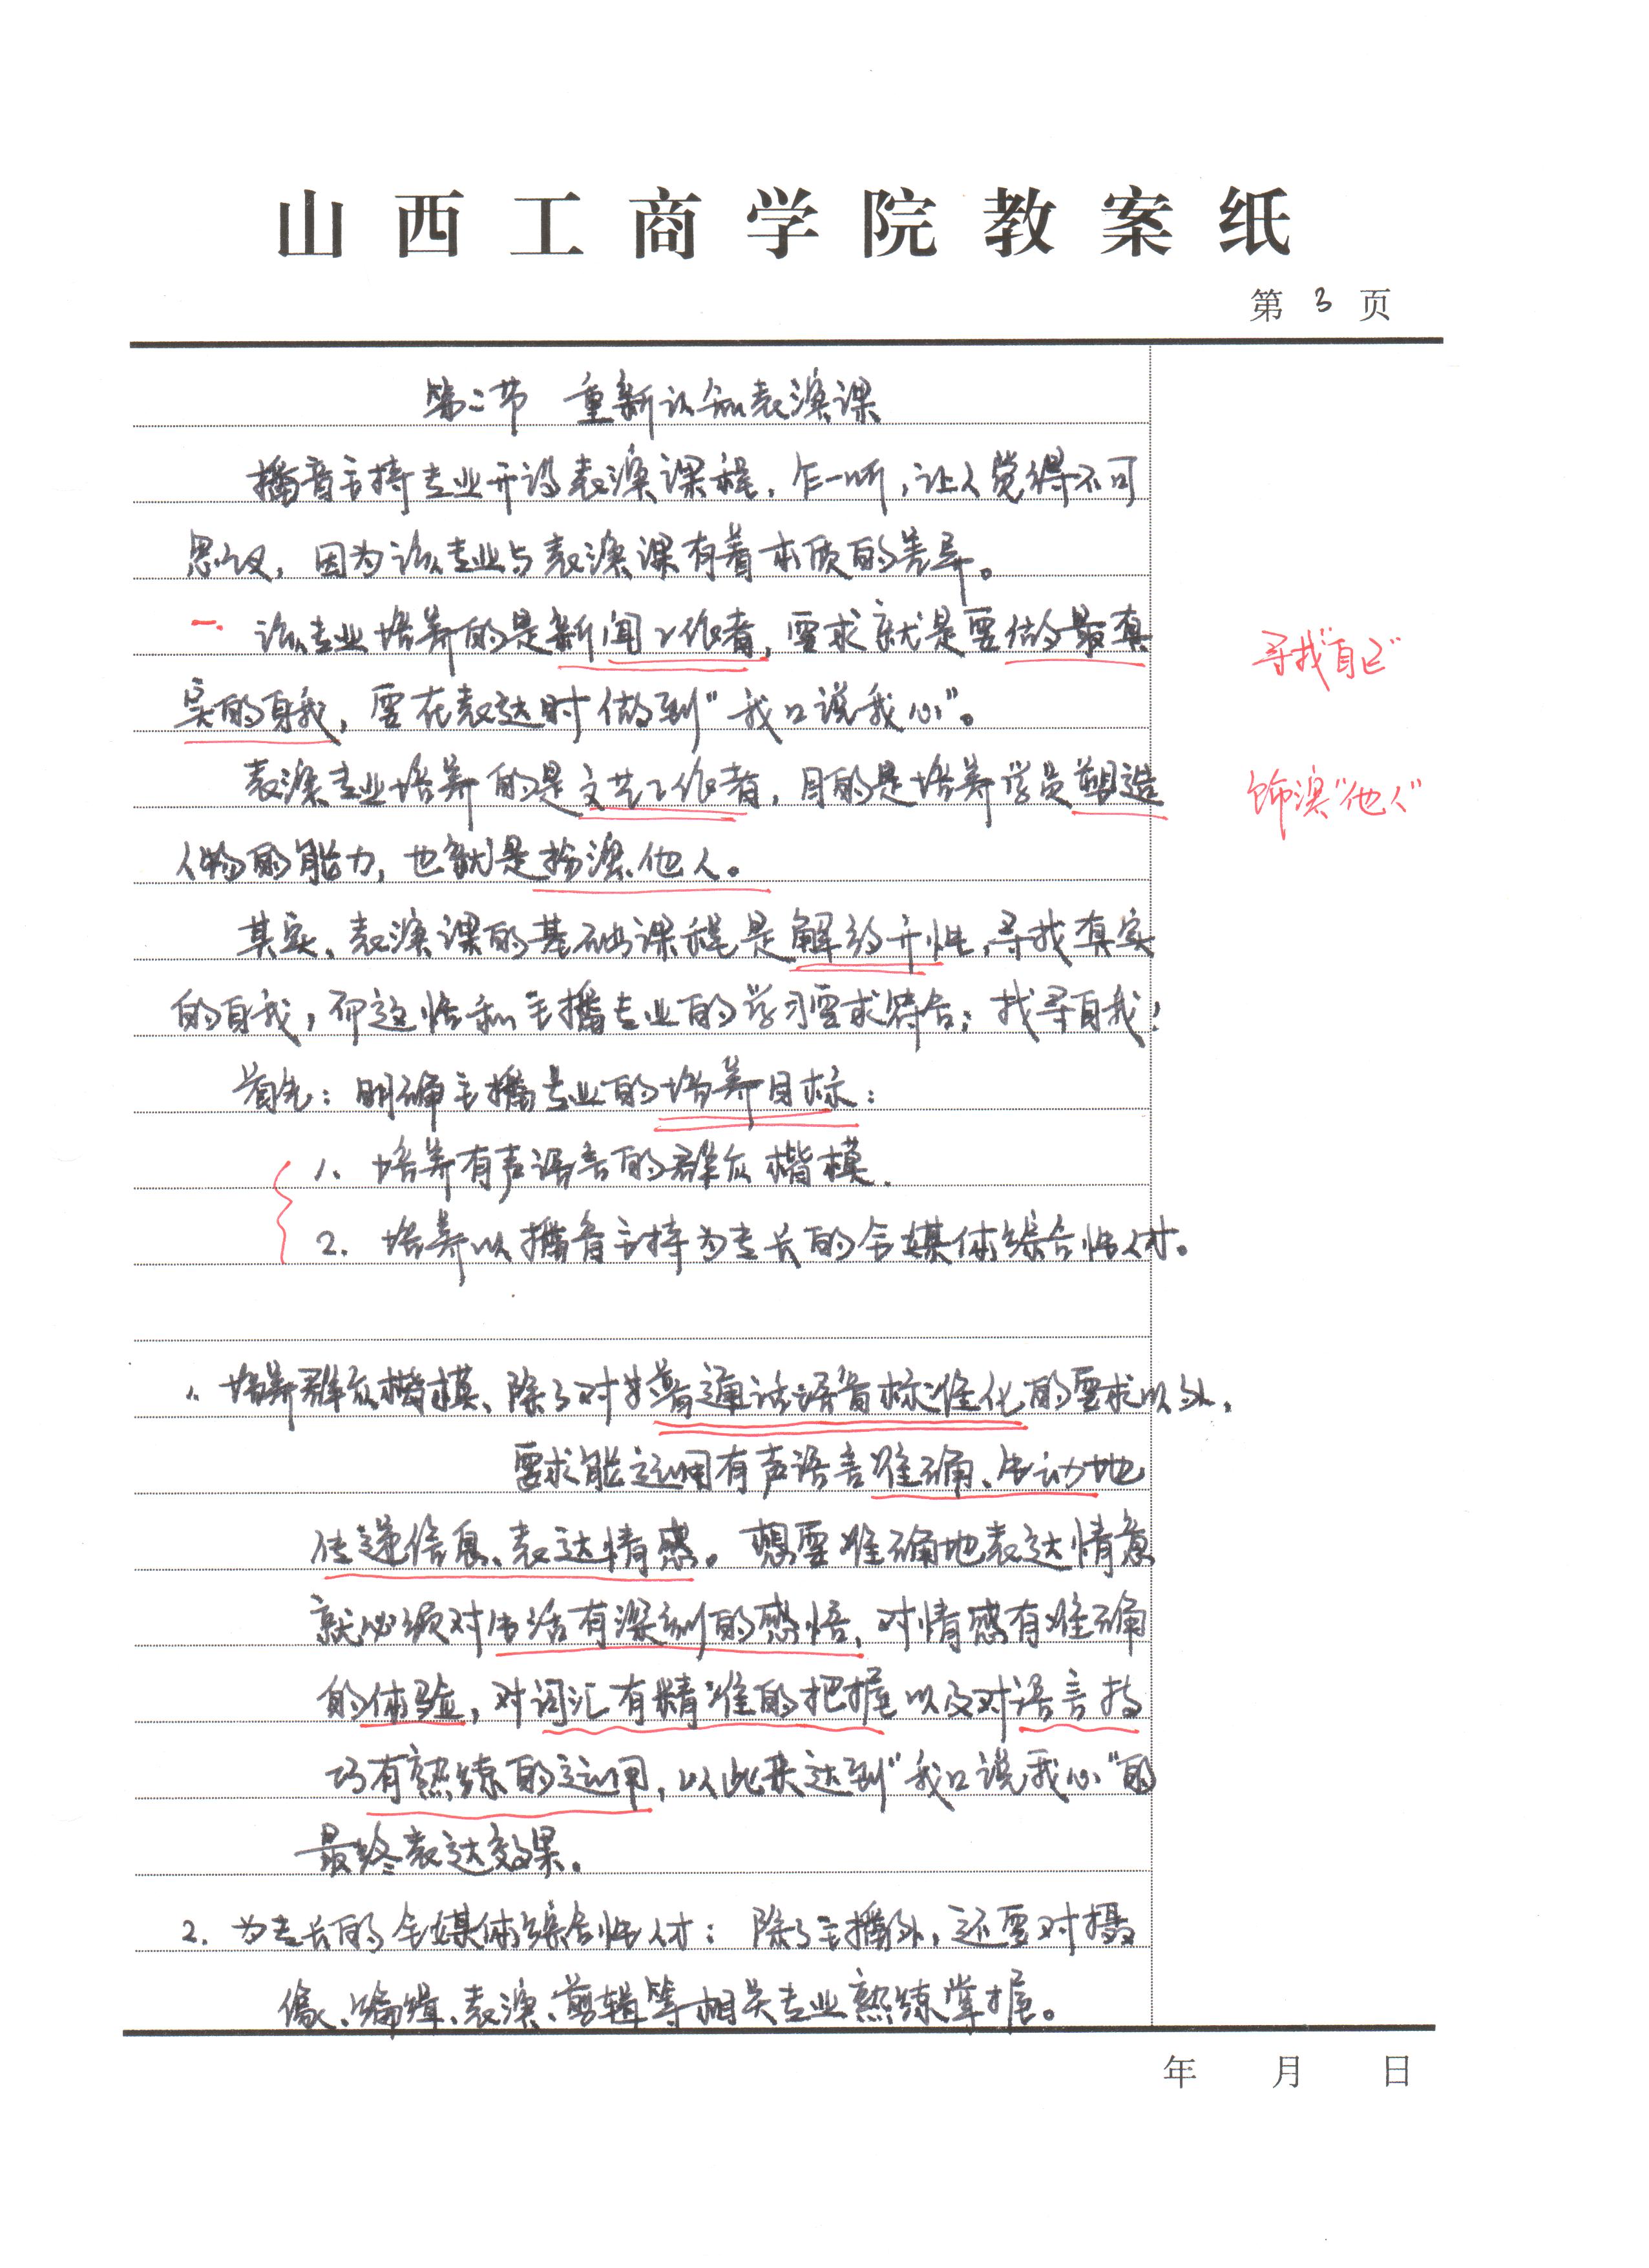 山西工商学院教案纸
第 3 页
第二节 重新认知表演课
播音主持专业开设表演课程，乍一听，让人觉得不可
思议，因为该专业与表演课有着本质的差异。
一. 该专业培养的是新闻工作者，要求就是要做最真
实的自我，要在表达时做到"我口说我心"。
寻找"自己"
表演专业培养的是文艺工作者，目的是培养学员塑造
人物的能力，也就是扮演他人。
饰演"他人"
其实，表演课的基础课程是解放天性，寻找真实
的自我，而这恰和主播专业的学习要求符合：找寻自我！
首先：明确主播专业的培养目标：
1、培养有声语言的群众楷模.
2. 培养以播音主持为专长的全媒体综合性人才。
1. 培养群众楷模、除了对普通话语音标准化的要求以外，
要求能运用有声语言准确、生动地
传递信息、表达情感。想要准确地表达情意
就必须对生活有深刻的感悟，对情感有准确
的体验，对词汇有精准的把握以及对语言技
巧有熟练的运用，以此来达到"我口说我心"的
最终表达效果。
2. 为专长的全媒体综合性人才：除了主播外，还要对摄
像、编辑、表演、剪辑等相关专业熟练掌握。
年 月 日